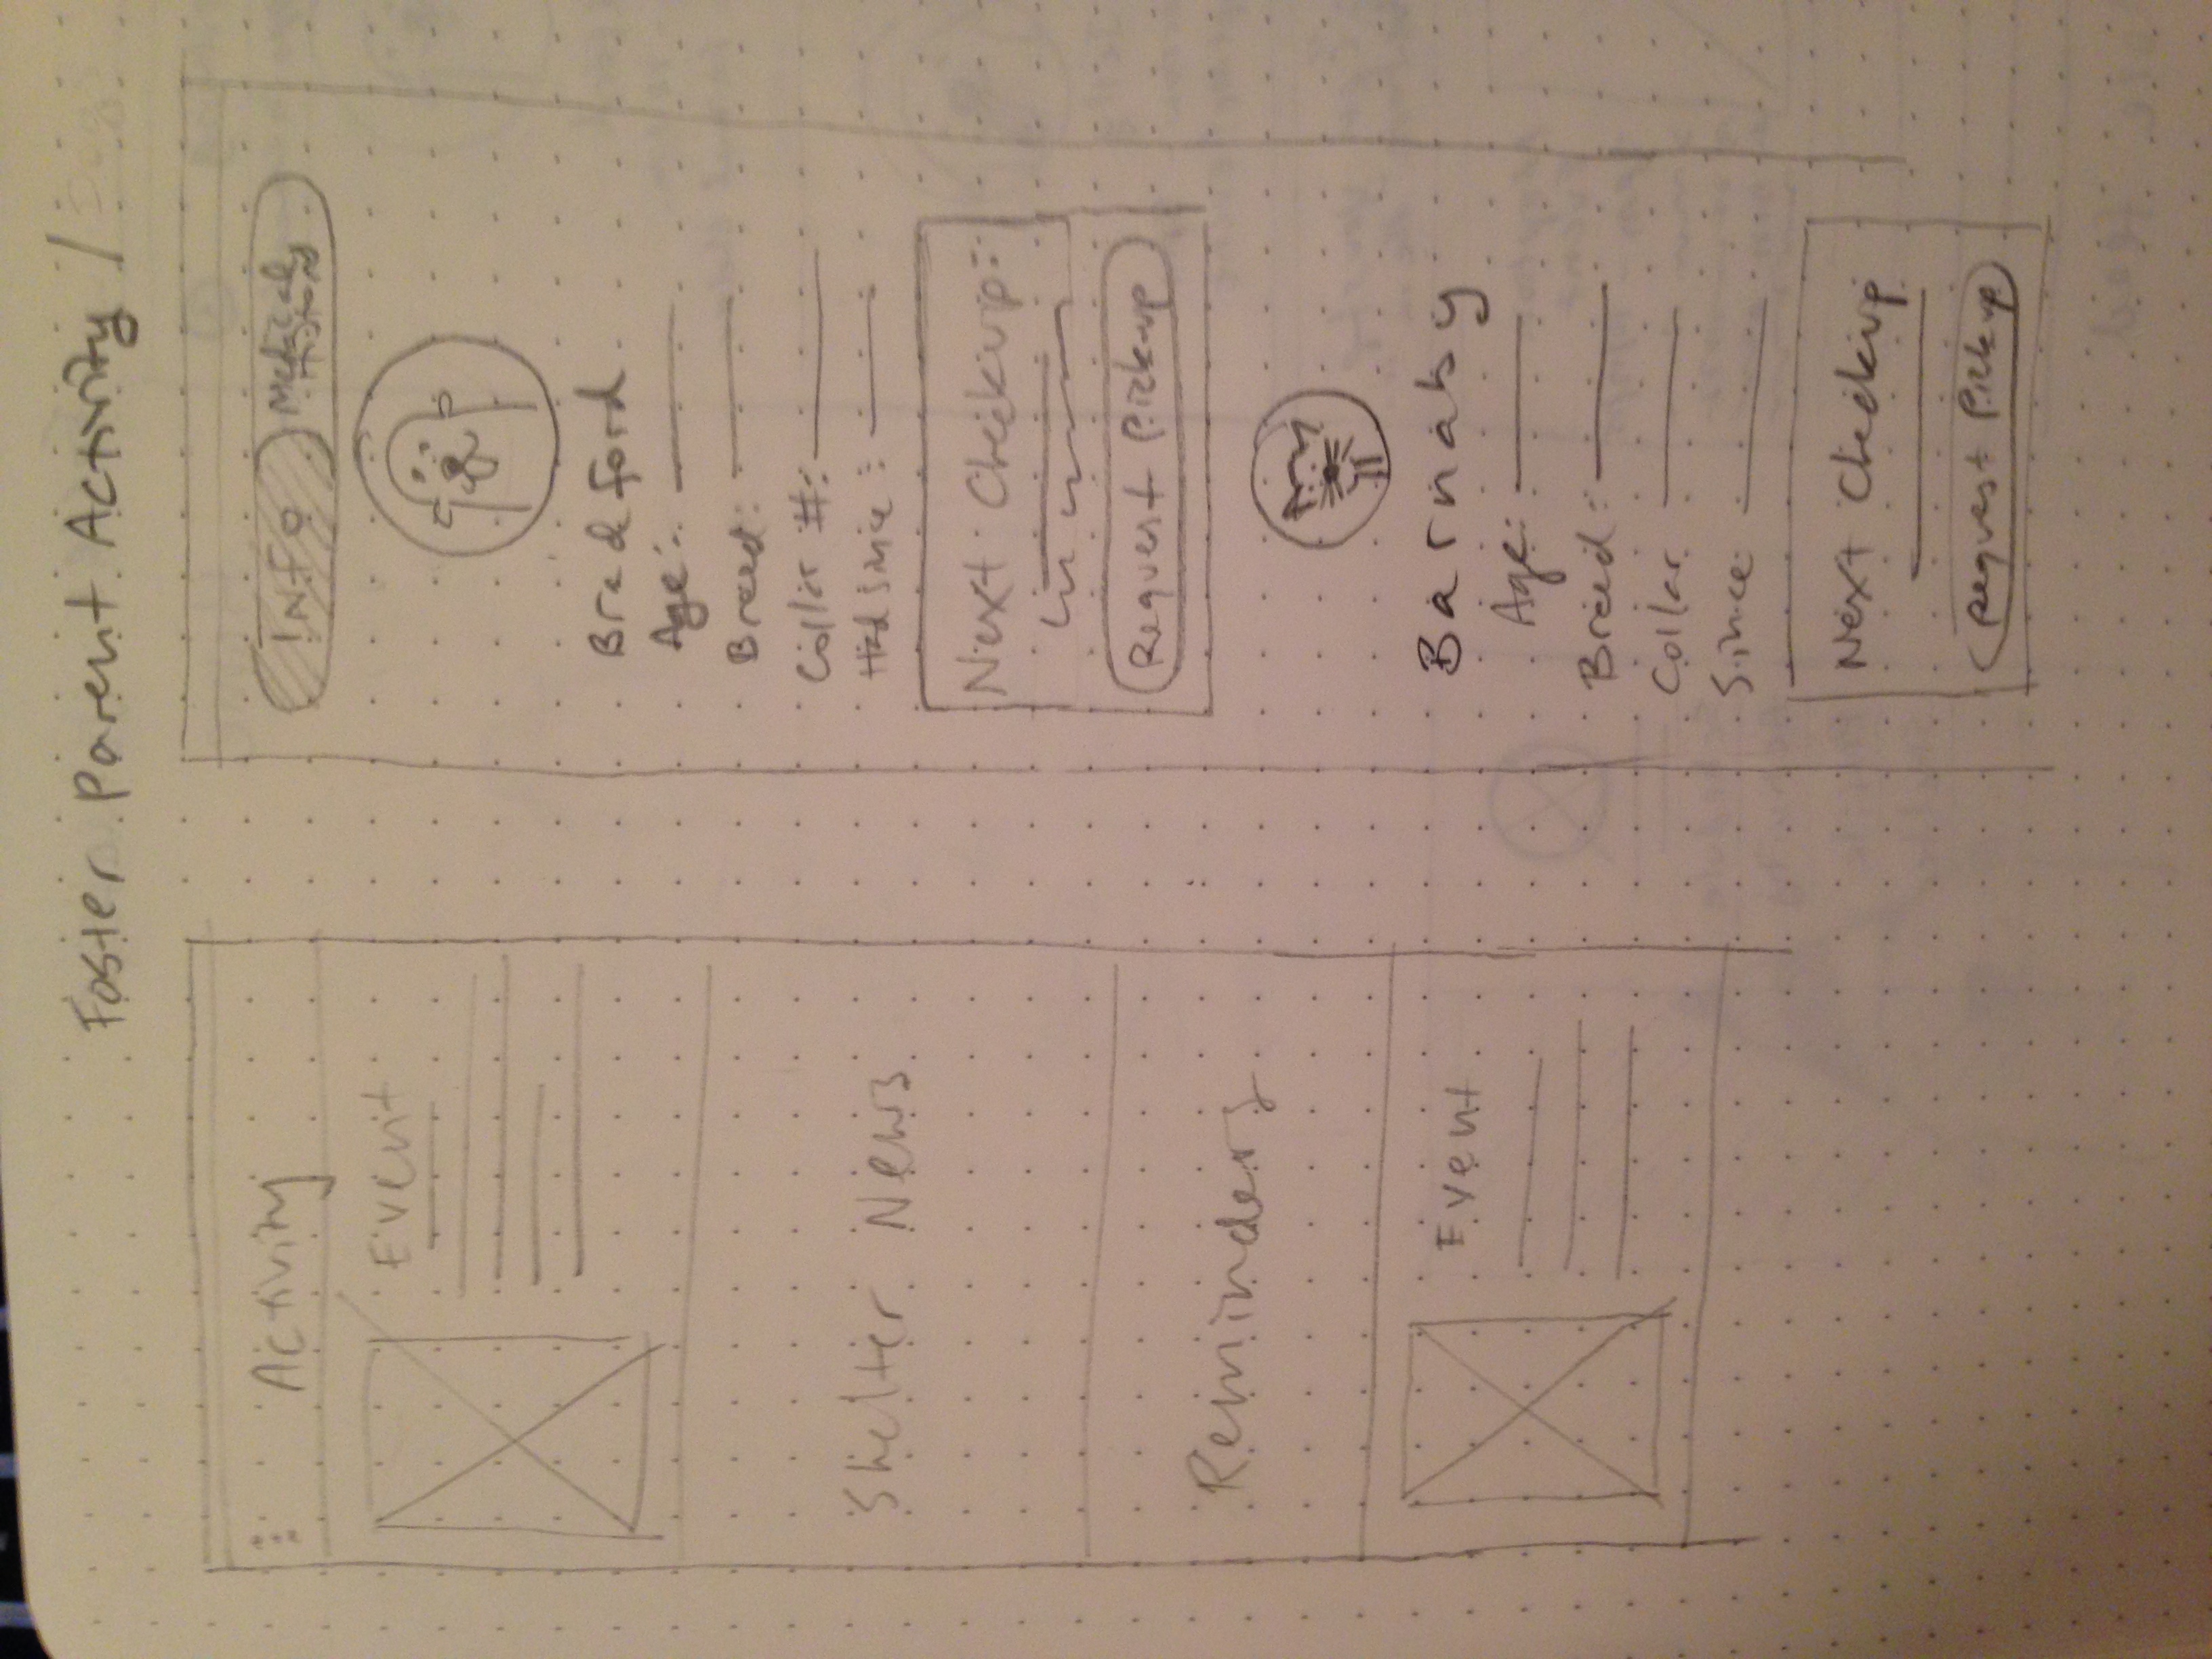 Foster Parent Activity /
Activity
Event
Shelter News
Reminders
Event
INFO
Medical
History
Bradford
Age:
Breed:
Collar #:
Had Since:
Next Checkup:
Request Pickup
Barnaby
Age:
Breed:
Collar
Since
Next Checkup
Request Pickup